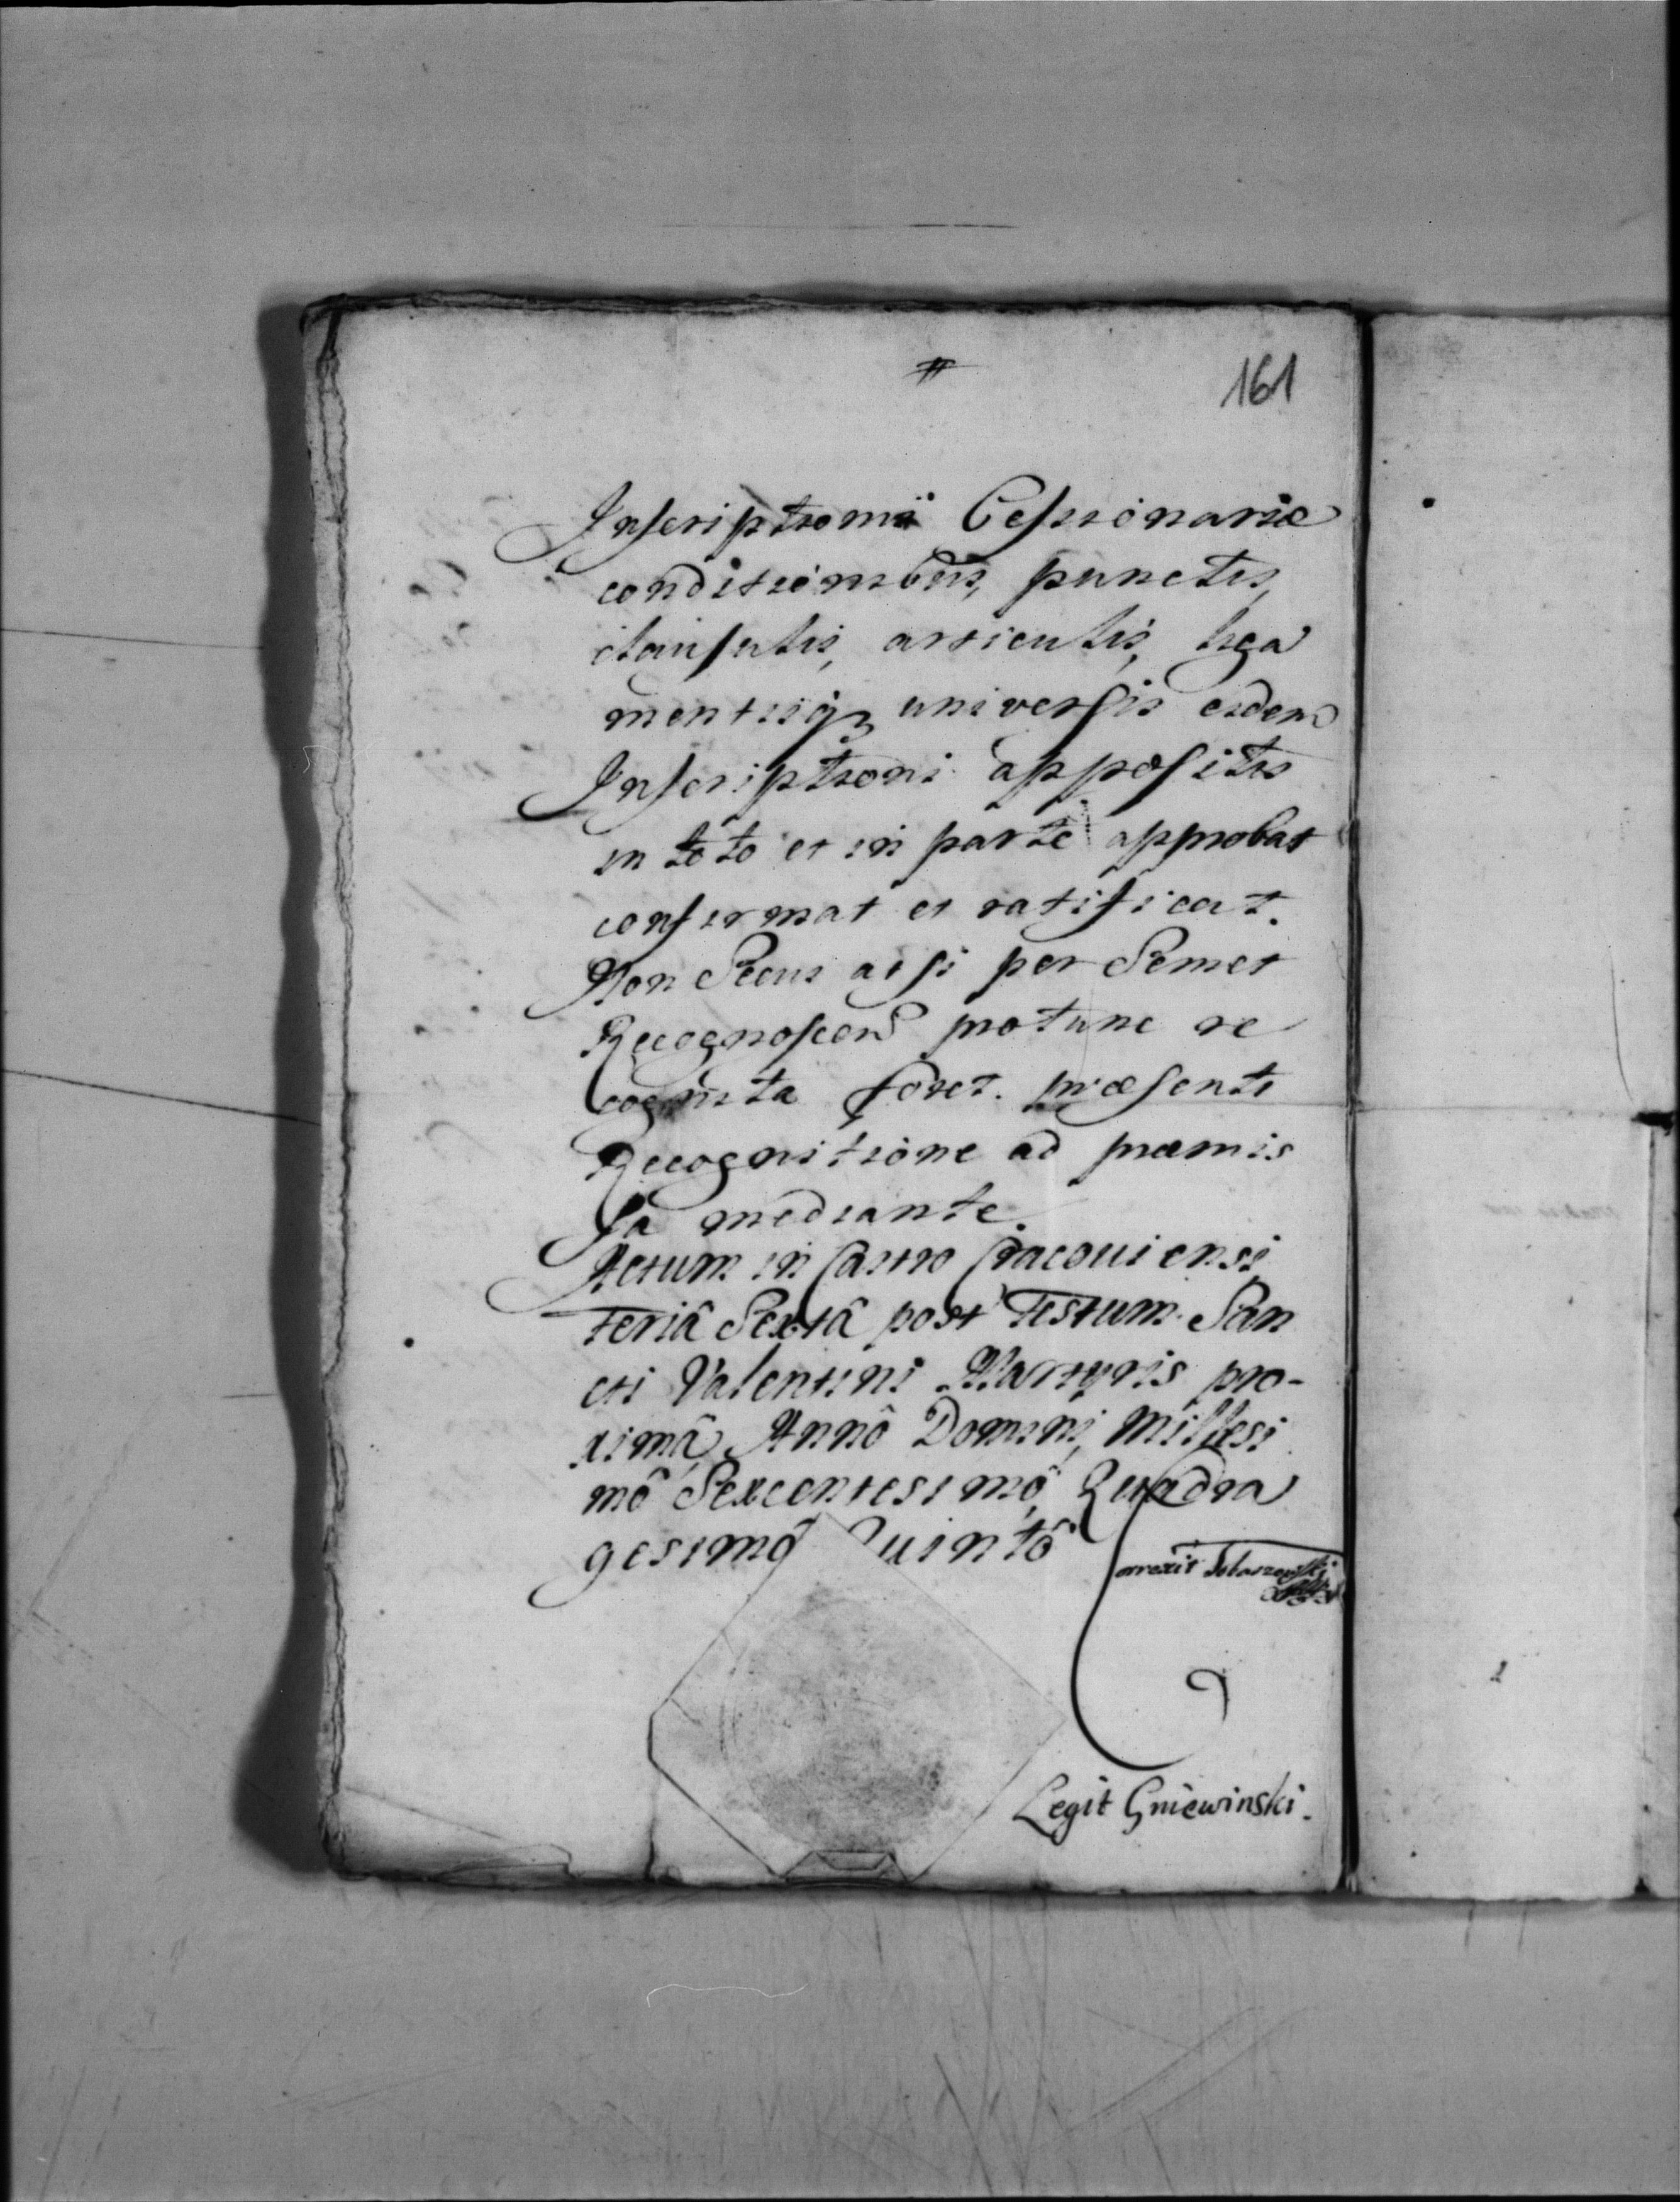 161
Inscriptioni Cessionariæ
conditionibus, punctis,
clausulis, articulis, liga
mentisq3 universis eidem
Inscriptioni appositis
in toto et in parte approbat
confirmat et ratificat.
Non Secus acsi per Semet
Recognoscens protunc re
cognita foret. præsenti
Recognitione ad præmis
sa mediante.
Actum in Castro Cracouiensi
Feriâ Sextâ post Festum San
cti Valentini Martyris pro-
ximâ, Annô Domini, Millesi
mô Sexcentesimô, Quadra
gesimô Quintô
Correxit
Legit Gniewinski.